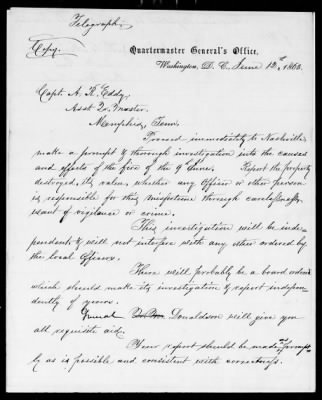 Telegraph.
(Copy.)
Quartermaster General's Office,
Washington, D. C., June 12th, 1865.
Capt. A. R. Eddy,
Asst Qr. Master.
Memphis, Tenn.
Proceed immediately to Nashville
make a prompt & thorough investigation into the causes
and effects of the fire of the 9 June. Report the property
destroyed, its value, whether any Officer or other person
is responsible for this misfortune through carelessness,
want of vigilance or crime.
This investigation will be inde-
pendent & will not interfere with any other ordered
by the local Officers.
There will probably be a board ordered
which should make its investigation & report indepen-
dently of yours.
General Donaldson will give you
all requisite aid.
Your report should be made as prompt-
ly as is possible and consistent with correctness.